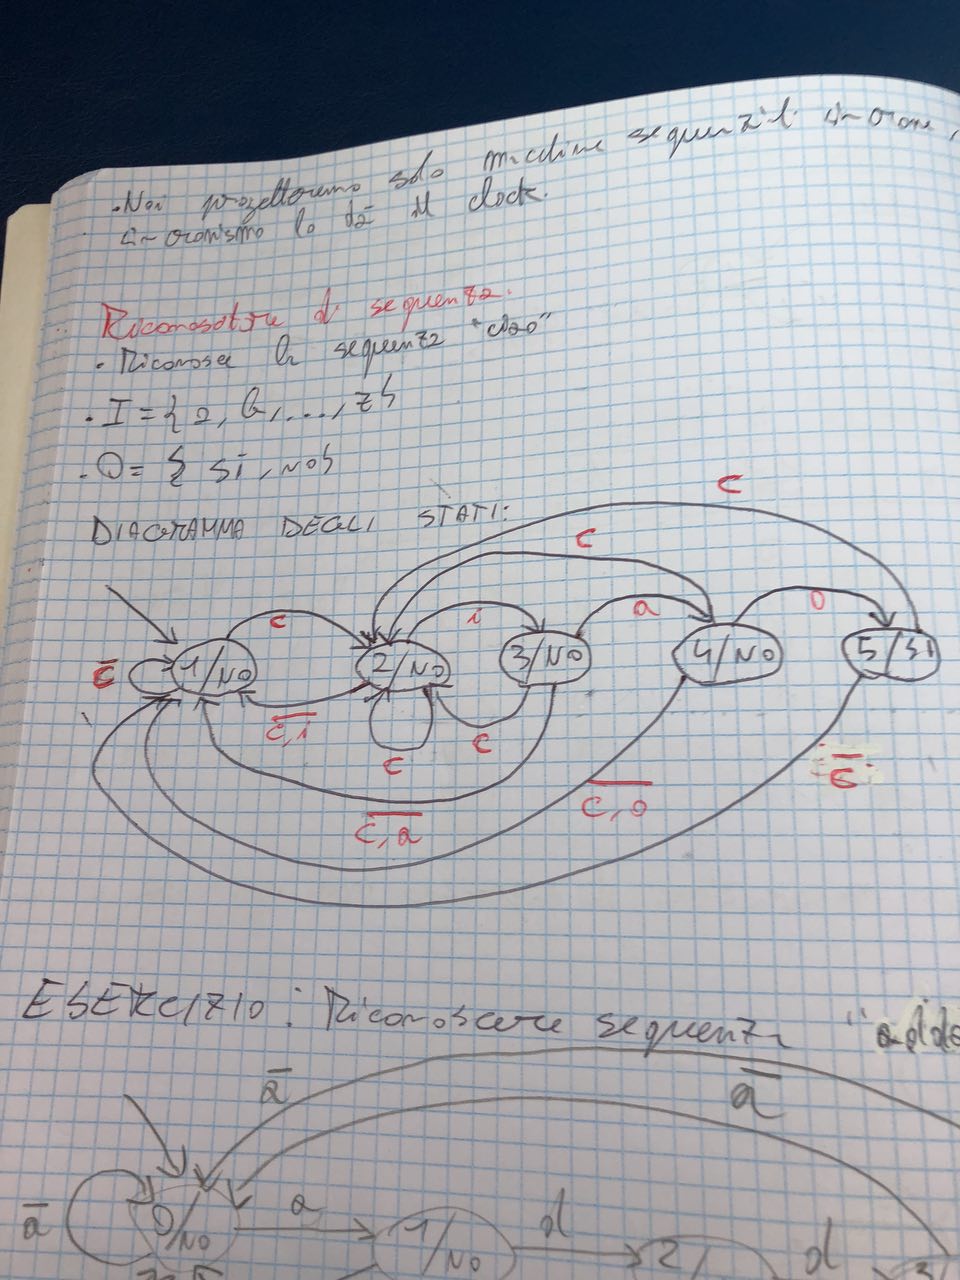 . Noi progetteremo solo macchine sequenziali sincrone,
sincronismo lo dà il clock.
Riconoscitore di sequenza.
. Riconosce la sequenza "ciao"
. I = { a, b, ..., z }
. O = { Si, no }
DIAGRAMMA DEGLI STATI:
c
c
c i a o
c̅ 1/NO 2/NO 3/NO 4/NO 5/SI
c,i c c c̅
c,a c,o
ESERCIZIO: Riconoscere sequenza "
a̅ a̅
a̅ 0/NO a 1/NO d 2/ d 3/